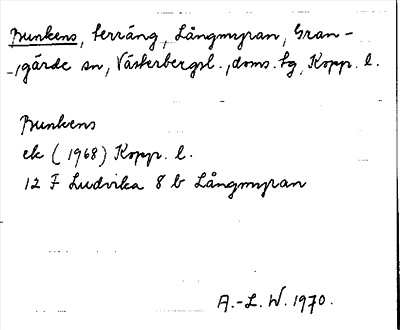 Bunkens, terräng, Långmyran, Gran-
-gärde sn, Västerbergsl., doms. tg, Kopp. l.
Bunkens
ek (1968) Kopp. l.
12 F Ludvika 8 b Långmyran
A.-L. W. 1970.